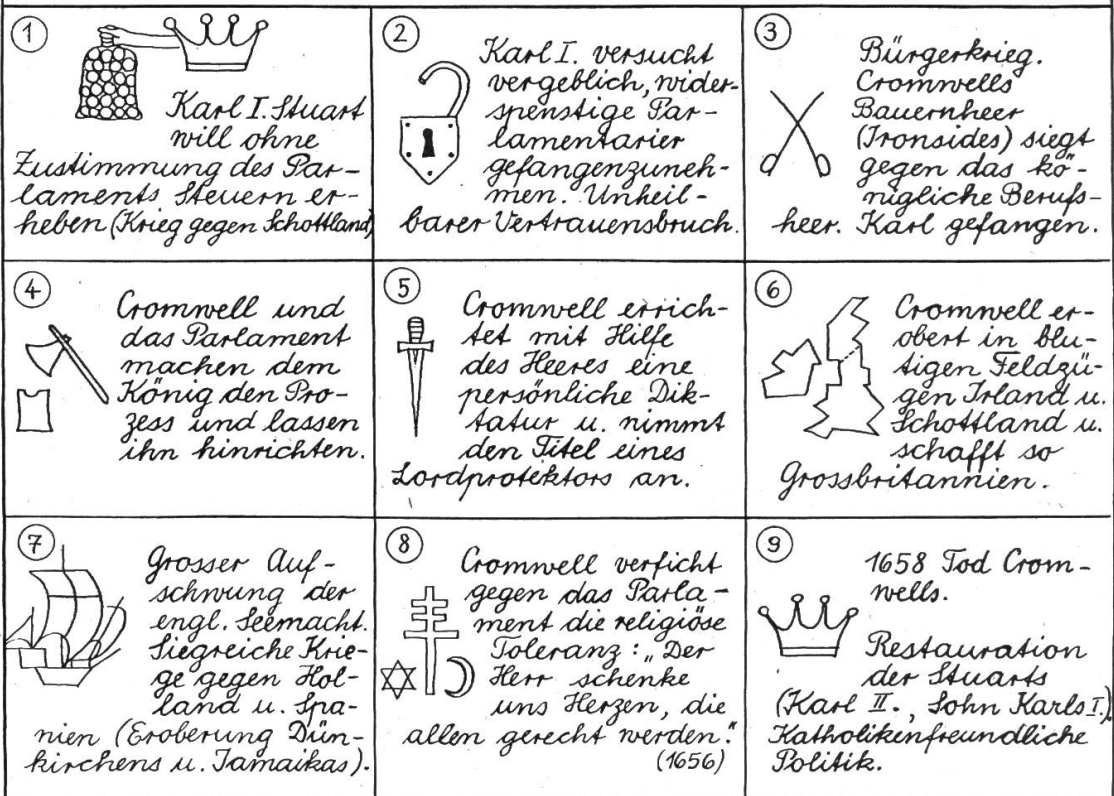 1
Karl I. Stuart
will ohne
Zustimmung des Par-
laments Steuern er-
heben (Krieg gegen Schottland)
2
Karl I. versucht
vergeblich, wider-
spenstige Par-
lamentarier
gefangenzuneh-
men. Unheil-
barer Vertrauensbruch.
3
Bürgerkrieg.
Cromwells
Bauernheer
(Ironsides) siegt
gegen das kö-
nigliche Berufs-
heer. Karl gefangen.
4
Cromwell und
das Parlament
machen dem
König den Pro-
zess und lassen
ihn hinrichten.
5
Cromwell errich-
tet mit Hilfe
des Heeres eine
persönliche Dik-
tatur u. nimmt
den Titel eines
Lordprotektors an.
6
Cromwell er-
obert in blu-
tigen Feldzü-
gen Irland u.
Schottland u.
schafft so
Grossbritannien.
7
Grosser Auf-
schwung der
engl. Seemacht.
Siegreiche Krie-
ge gegen Hol-
land u. Spa-
nien (Eroberung Dün-
kirchens u. Jamaikas).
8
Cromwell verficht
gegen das Parla-
ment die religiöse
Toleranz: „Der
Herr schenke
uns Herzen, die
allen gerecht werden."
(1656)
9
1658 Tod Crom-
wells.
Restauration
der Stuarts
(Karl II., Sohn Karls I.)
Katholikenfreundliche
Politik.